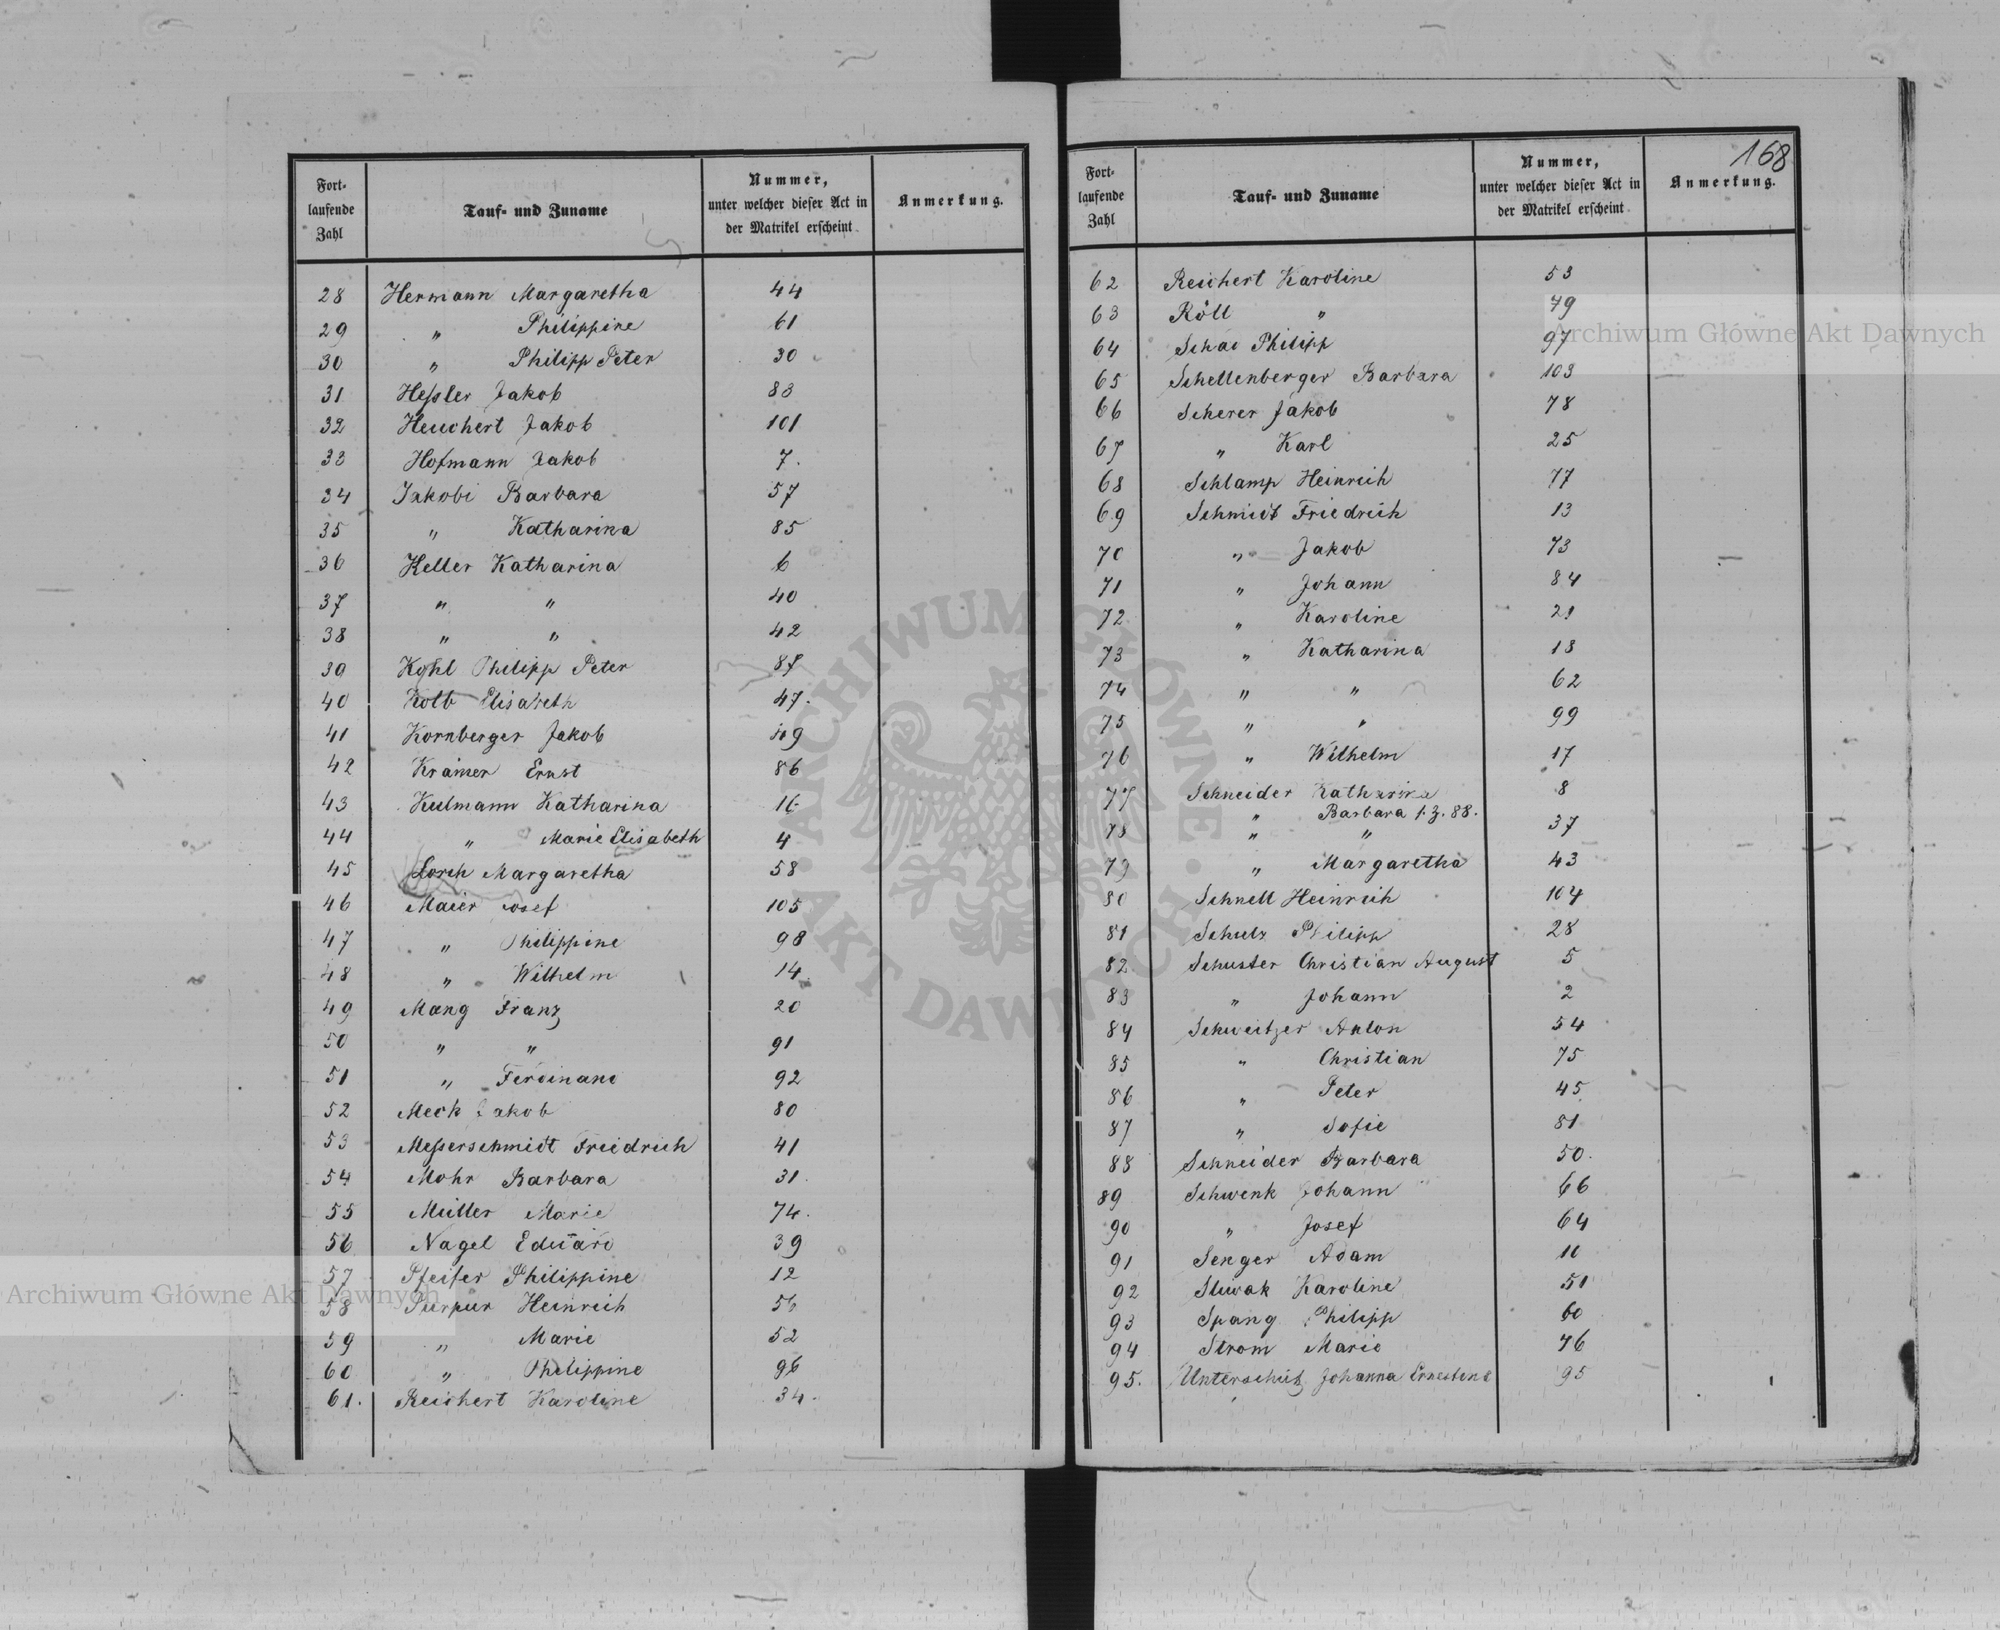 Fort-
laufende
Zahl
Tauf- und Zuname
Nummer,
unter welcher dieser Act in
der Matrikel erscheint
Anmerkung.
28 Hermann Margaretha 44
29 " Philippine 61
30 " Philipp Peter 30
31 Heſsler Jakob 83
32 Heuchert Jakob 101
33 Hofmann Jakob 7.
34 Jakobi Barbara 57
35 " Katharina 85
36 Keller Katharina 6
37 " " 40
38 " " 42
39 Kohl Philipp Peter 87
40 Kolb Elisabeth 47.
41 Kornberger Jakob 49
42 Kramer Ernst 86
43 Kulmann Katharina 16
44 " Marie Elisabeth 4
45 Lorch Margaretha 58
46 Maier Josef 105
47 " Philippine 98
48 " Wilhelm 14
49 Mang Franz 20
50 " " 91
51 " Ferdinand 92
52 Meck Jakob 80
53 Meſserschmidt Friedrich 41
54 Mohr Barbara 31.
55 Müller Marie 74.
56 Nagel Eduard 39
57 Pfeifer Philippine 12
58 Purpur Heinrich 56
59 " Marie 52
60 " Philippine 96
61. Reichert Karoline 34.
168
Fort-
laufende
Zahl
Tauf- und Zuname
Nummer,
unter welcher dieser Act in
der Matrikel erscheint
Anmerkung.
62 Reichert Karoline 53
63 Röll " 79
64 Schad Philipp 97
65 Schellenberger Barbara 103
66 Scherer Jakob 78
67 " Karl 25
68 Schlamp Heinrich 77
69 Schmidt Friedrich 13
70 " Jakob 73
71 " Johann 84
72 " Karoline 21
73 " Katharina 18
74 " " 62
75 " " 99
76 " Wilhelm 17
77 Schneider Katharina 8
" Barbara f. z. 88.
78 " " 37
79 " Margaretha 43
80 Schnell Heinrich 104
81 Schulz Philipp 28
82 Schuster Christian August 5
83 " Johann 2
84 Schweitzer Anton 54
85 " Christian 75
86 " Peter 45
87 " Sofie 81
88 Schneider Barbara 50.
89 Schwenk Johann 66
90 " Josef 64
91 Senger Adam 10
92 Sluwak Karoline 51
93 Spang Philipp 60
94 Strom Marie 76
95. Unterschütz Johanna Ernestine 95
Archiwum Główne Akt Dawnych
Archiwum Główne Akt Dawnych
ARCHIWUM GŁÓWNE · AKT DAWNYCH ·